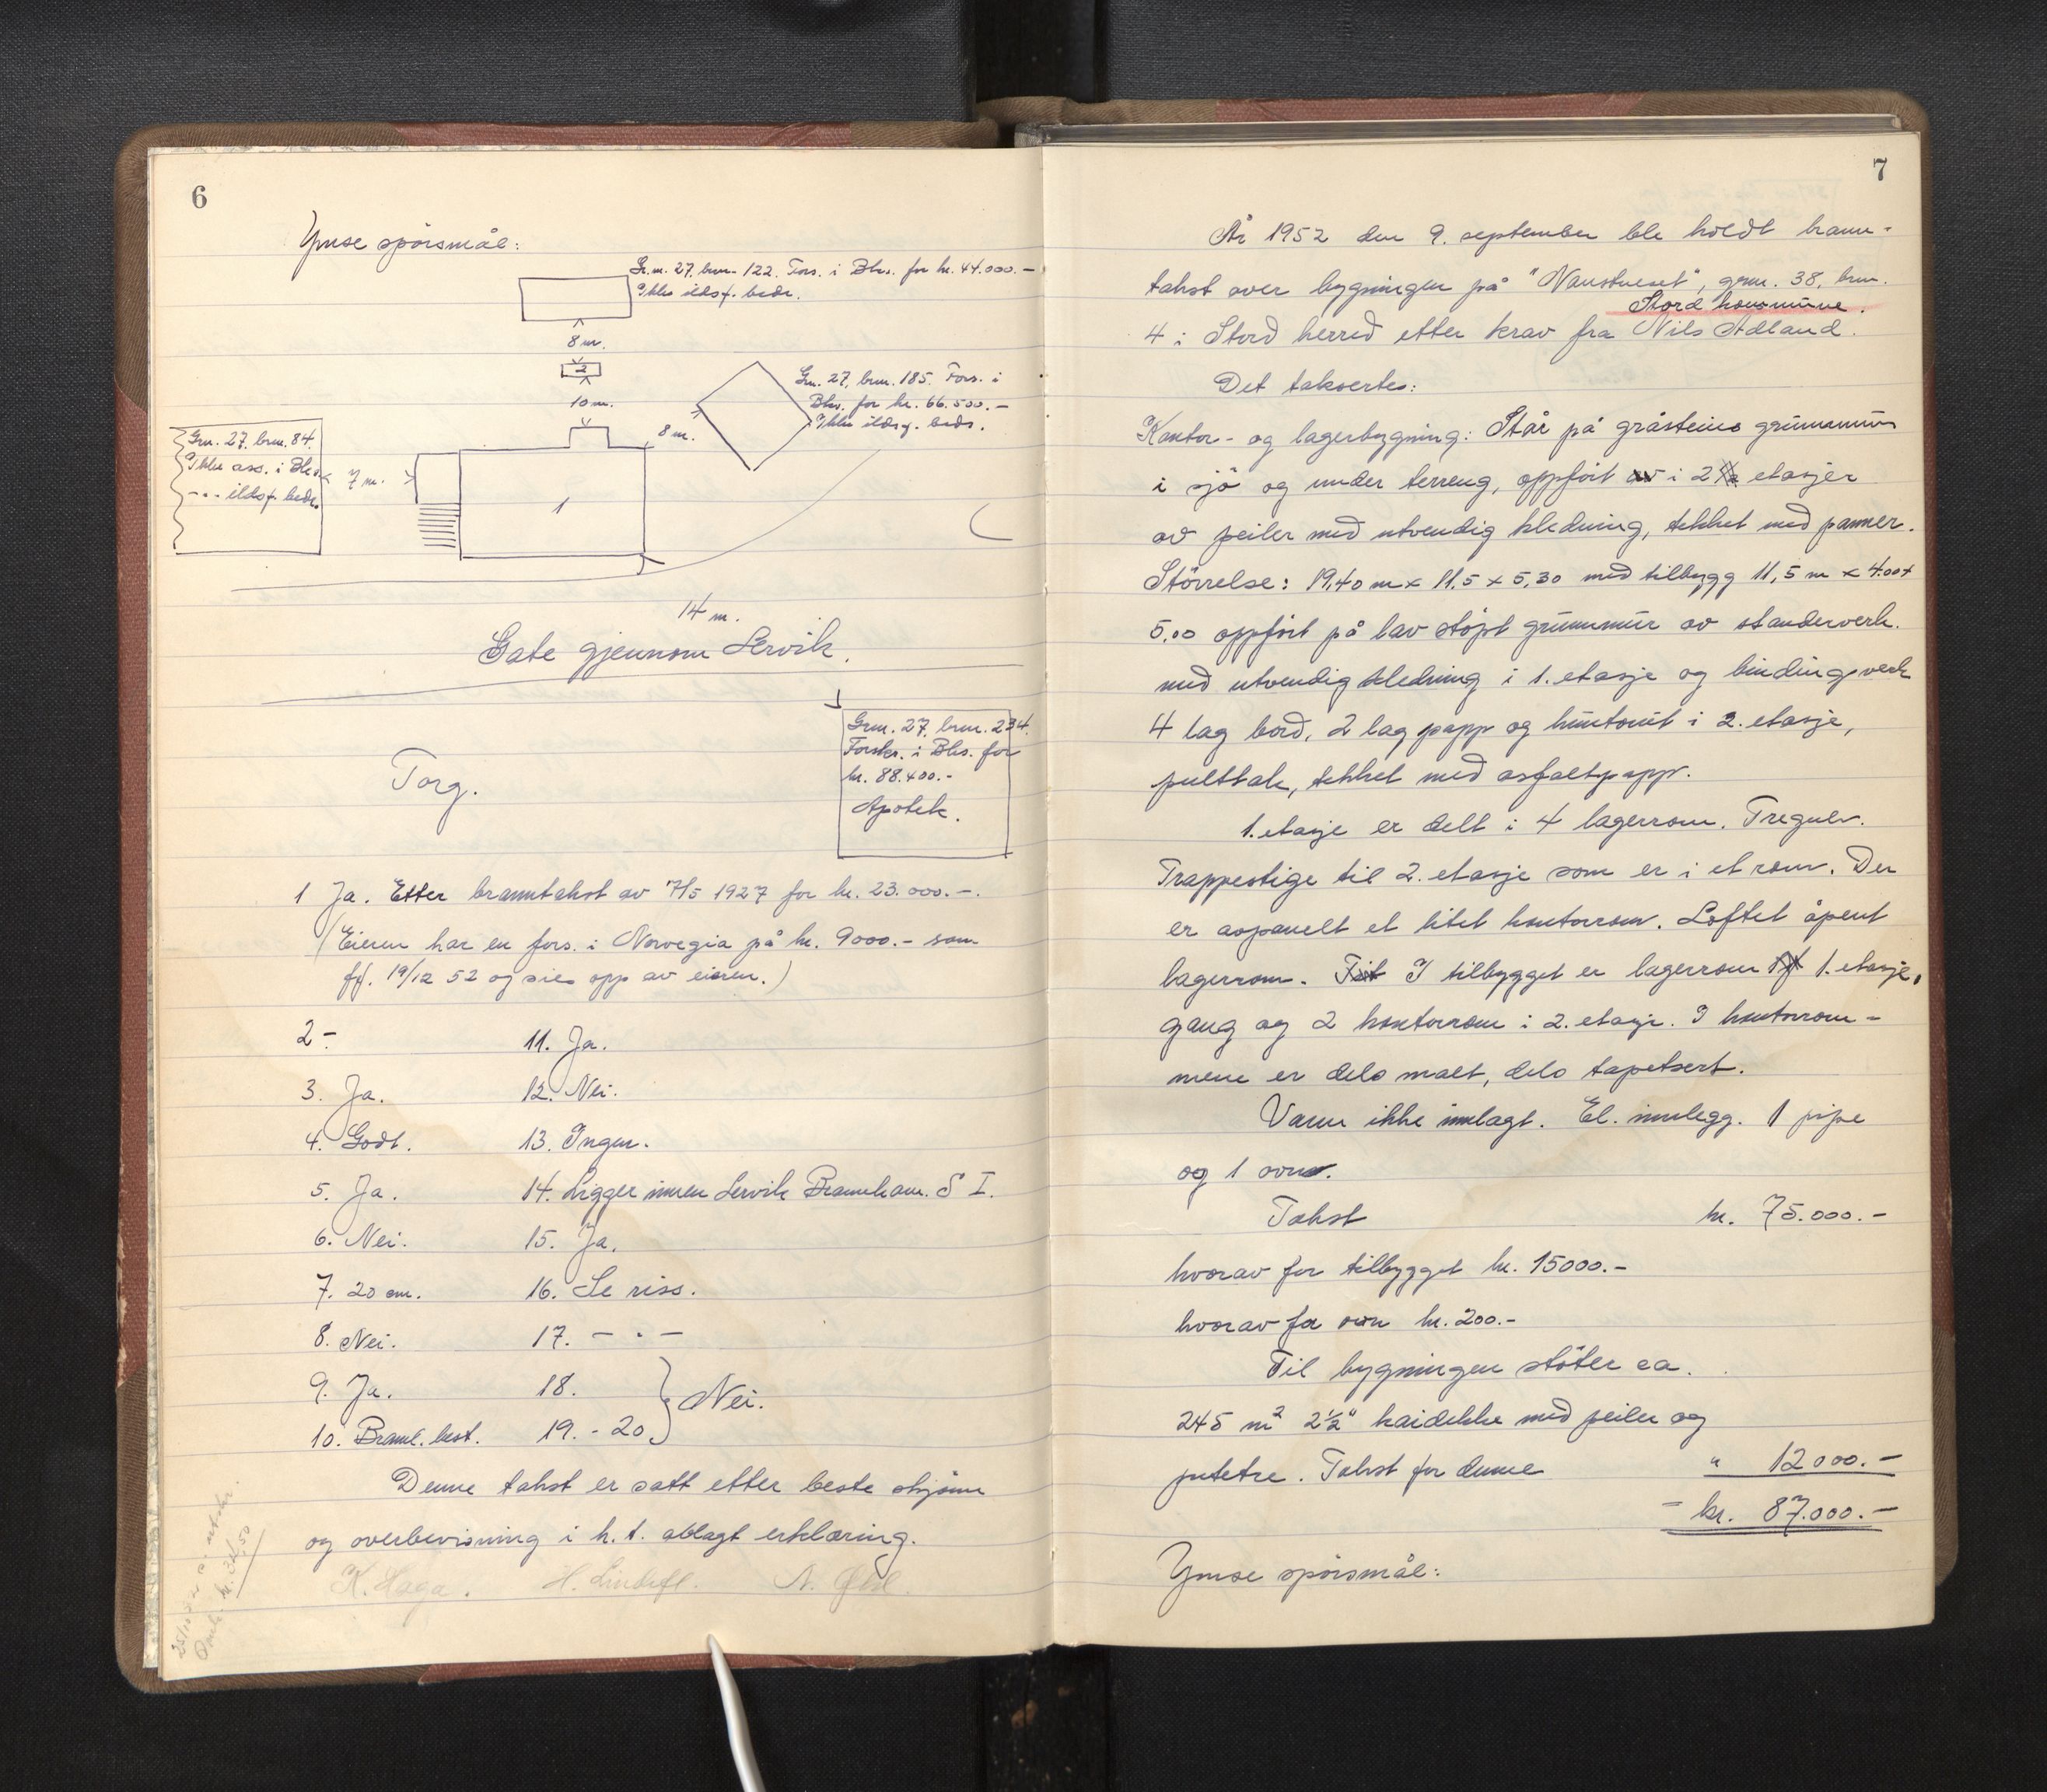 6
Ymse spörsmål:
Gr.n. 27, brn. 122. Fors. i Bks. for kr. 44.000.-
Ikke ildsf. bedr.
8 m.
2
10 m.
Grn. 27, brn. 185. Fors. i
Bks. for kr. 66.500.-
Ikke ildsf. beds.
8 m.
Grn. 27, brn. 84.
Ikke ass. i Bks.
-"- ildsf. bedr.
7 m.
1
14 m.
Gate gjennom Lervik.
Torg.
Grn. 27, brn. 234.
Forsikr. i Bks. for
kr. 88.400.-
Apotek.
1 Ja. Etter branntakst av 7/5 1927 for kr. 23.000.-.
(Eieren har en fors. i Norvegia på kr. 9000.- som
ff. 19/12 52 og sies opp av eieren.)
2 -
3. Ja.
4. Godt.
5. Ja.
6. Nei.
7. 20 cm.
8. Nei.
9. Ja.
10. Brannl. best.
11. Ja.
12. Nei.
13. Ingen.
14. Ligger innen Lervik Brannkom. S I.
15. Ja.
16. Se riss.
17. - " -
18.
19. - 20 } Nei.
Denne takst er satt etter beste skjönn
og overbevisning i h. t. avlagt erklæring.
K. Haga.
7
År 1952 den 9. september ble holdt brann-
takst over bygningen på "Naustneset", grn. 38, brn.
Stord kommune.
4 i Stord herred etter krav fra Nils Adland.
Det takseres:
Kontor- og lagerbygning: Står på gråsteins grunnmur
i sjö og under terreng, oppfört av i 2 ½ etasjer
av peiler med utvendig kledning, tekket med panner.
Störrelse: 19,40 m x 11,5 x 5,30 med tilbygg 11,5 m x 4.00 x
5,00 oppfört på lav stöpt grunnmur av standerverk.
med utvendig kledning i 1. etasje og bindingsverk
4 lag bord, 2 lag papp og huntonit i 2. etasje,
pulttak, tekket med asfaltpapp.
1. etasje er delt i 4 lagerrom. Tregulv.
Trappestige til 2. etasje som er i et rom. Der
er avpanelt et litet kontorrom. Loftet åpent
lagerrom. I tilbygget er lagerrom i 1. etasje,
gang og 2 kontorrom i 2. etasje. I kontorrom-
mene er dels malt, dels tapetsert.
Vann ikke innlagt. El. innlegg. 1 pipe
og 1 ovn.
Takst kr. 75.000.-
hvorav for tilbygget kr. 15000.-
hvorav for ovn kr. 200.-
Til bygningen stöter ca.
245 m² 2½" kaidekke med peiler og
putetre. Takst for denne " 12000.-
kr. 87.000.-
Ymse spörsmål: